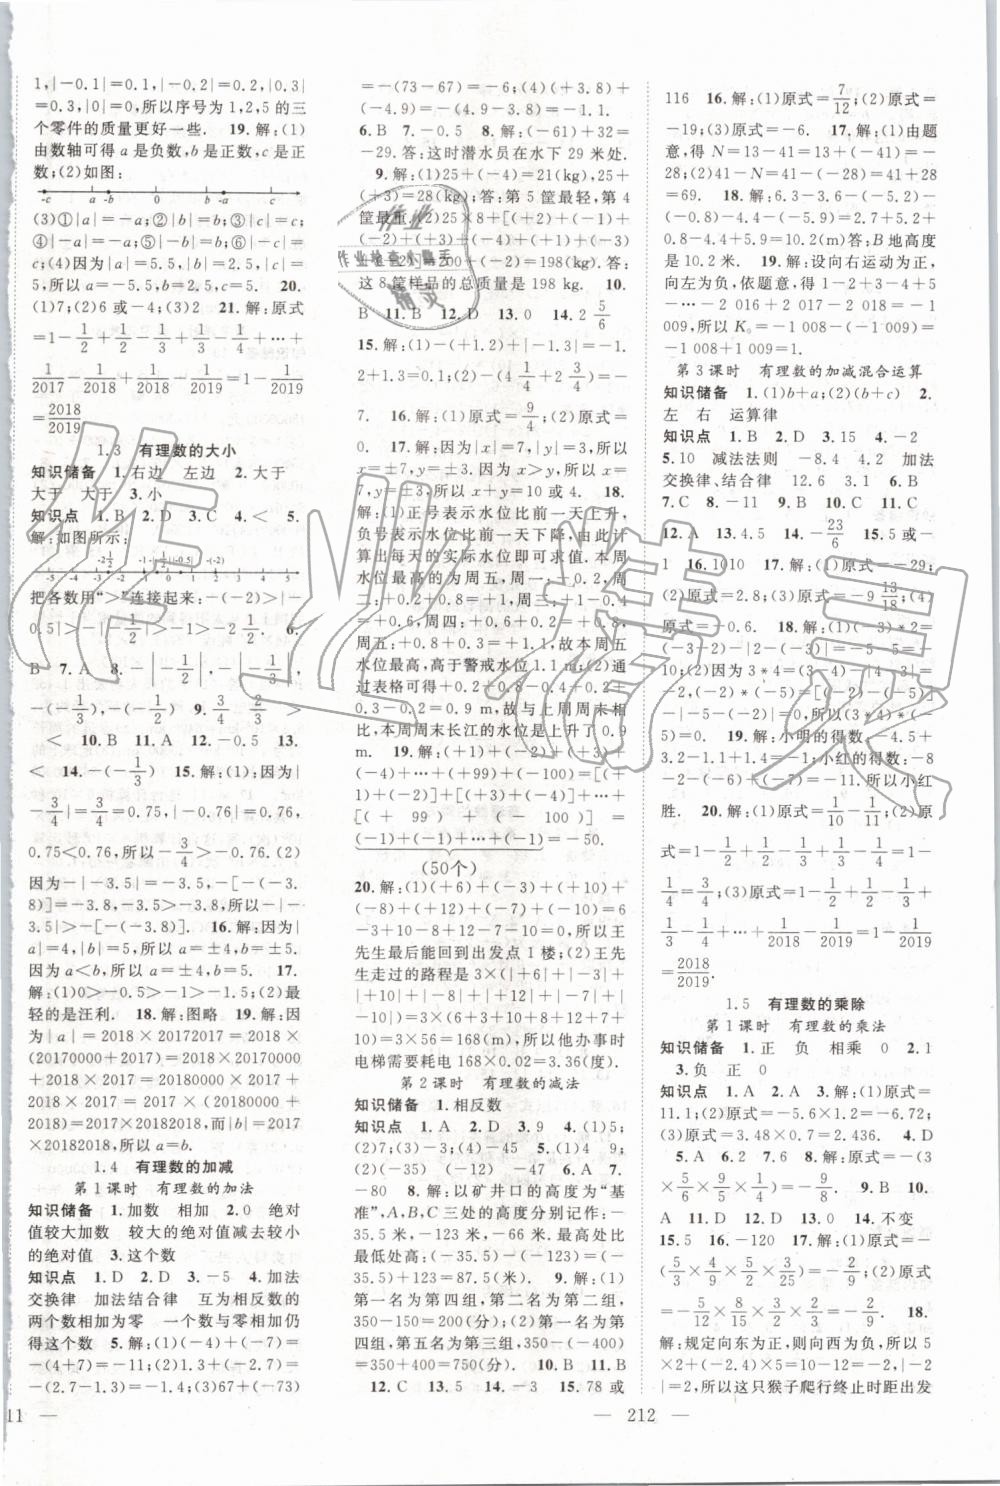 1,|−0.1|=0.1,|−0.2|=0.2,|0.3|
=0.3,|0|=0,所以序号为 1,2,5 的三
个零件的质量更好一些. 19.解:(1)
由数轴可得 a 是负数,b 是正数,c 是正
数;(2)如图:
-c a -b 0 b -a c
(3)①|a|=−a;②|b|=b;③|c|=c;
④|−a|=−a;⑤|−b|=b;⑥|−c|=
c;(4)因为|a|=5.5,|b|=2.5,|c|=
5,所以 a=−5.5,b=2.5,c=5. 20.
(1)7;(2)6 或−4;(3)2 21.解:原式
=1−1/2+1/2−1/3+1/3−1/4+…+
1/2017−1/2018+1/2018−1/2019=1−1/2019
=2018/2019
1.3 有理数的大小
知识储备 1.右边 左边 2.大于
大于 大于 3.小
知识点 1.B 2.D 3.C 4.< 5.
解:如图所示:
-5 -4 -3 -2 -1 0 1 2 3 4 5
把各数用“>”连接起来:−(−2)>|−
0.5|>−|−1/2|>−1>−2 1/2. 6.
B 7.A 8.−|−1/2|,−|−1/3|,
−(−1/3),−(−1/2) 9.−3/4 −2/3 >
< 10.B 11.A 12.−0.5 13.
< 14.−(−1/3) 15.解:(1)因为|−
3/4|=3/4=0.75,|−0.76|=0.76,
0.75<0.76,所以−3/4>−0.76.(2)
因为−|−3.5|=−3.5,−[−(−3.
8)]=−3.8,−3.5>−3.8,所以−|−
3.5|>−[−(−3.8)]. 16.解:因为
|a|=4,|b|=5,所以 a=±4,b=±5.
因为 a<b,所以 a=±4,b=5. 17.
解:(1)0>−0.5>−1>−1.5;(2)最
轻的是汪利. 18.解:图略 19.解:因
为|a|=2018×20172017=2018×
(20170000+2017)=2018×(2017×
10000+2017)=2018×2017×10000
+2018×2017=20180000×2017+
2018×2017=(20180000+2018)×
2017=20182018×2017,而|b|=2017
×20182018,所以 a=b.
1.4 有理数的加减
第 1 课时 有理数的加法
知识储备 1.加数 相加 2.0 绝对
值较大加数 较大的绝对值减去较小
的绝对值 3.这个数
知识点 1.D 2.D 3.−5 4.加法
交换律 加法结合律 互为相反数的
两个数相加为零 一个数与零相加仍
得这个数 5.解:(1)(−4)+(−7)=
−(4+7)=−11;(2)1.3+(−2.7)=
−(2.7−1.3)=−1.4;(3)67+(−73)
11 —
=−(73−67)=−6;(4)(−4.9)+
3.8=−(4.9−3.8)=−1.1.
6.B 7.−0.5 8.解:(−61)+32=
−29.答:这时潜水员在水下 29 米处.
9.解:(1)25+(−4)=21(kg),25+
(+3)=28(kg);答:第 5 筐最轻,第 4
筐最重.(2)25×8+[(+2)+(−1)+
(−2)+(+3)+(−4)+(+1)+(−3)
+(+2)]=200+(−2)=198(kg).答:
这 8 筐样品的总质量是 198 kg. 10.
B 11.B 12.B 13.0 14.2 5/6
15.解:(1)−(+1.2)+|−1.3|=−1.
2+1.3=0.1;(2)−(4 1/4+2 3/4)=−
7. 16.解:(1)原式=9/4;(2)原式=
0. 17.解:因为|x|=7,|y|=3,所以
x=±7,y=±3.因为 x>y,所以 x=
7,y=±3,所以 x+y=10 或 4. 18.
解:(1)正号表示水位比前一天上升,
负号表示水位比前一天下降,由此计
算出每天的实际水位即可求值.本周
水位最高的为周五,周一:+0.2,周
二:+0.2+0.8=+1,周三:+1−0.4
=+0.6,周四:+0.6+0.2=+0.8,
周五:+0.8+0.3=+1.1,故本周五
水位最高,高于警戒水位 1.1 m;(2)通
过表格可得+0.2+0.8−0.4+0.2+
0.3−0.2=0.9 m,故与上周周末相
比,本周周末长江的水位是上升了 0.9
m. 19.解:(+1)+(−2)+(+3)+
(−4)+…+(+99)+(−100)=[(+
1)+(−2)]+[(+3)+(−4)]+…+
[(+99)+(−100)]=
(−1)+(−1)+…+(−1)=−50.
(50个)
20.解:(1)(+6)+(−3)+(+10)+
(−8)+(+12)+(−7)+(−10)=6
−3+10−8+12−7−10=0,所以王
先生最后能回到出发点 1 楼;(2)王先
生走过的路程是 3×(|+6|+|−3|+
|+10|+|−8|+|+12|+|−7|+
|−10|)=3×(6+3+10+8+12+7
+10)=3×56=168(m),所以他办事时
电梯需要耗电 168×0.02=3.36(度).
第 2 课时 有理数的减法
知识储备 1.相反数
知识点 1.A 2.D 3.9 4.(1)5;
(2)7;(3)−12;(4)−45 5.(−15)
(−35) (−17) (−12) 6.A 7.
−80 8.解:以矿井口的高度为“基
准”,A,B,C 三处的高度分别记作:−
35.5 米,−123 米,−66 米.最高处比
最低处高:(−35.5)−(−123)=(−
35.5)+123=87.5(米). 9.解:(1)
第一名为第四组,第二名为第二组,
350−150=200(分);(2)第一名为第
四组,第五名为第三组,350−(−400)
=350+400=750(分). 10.B 11.B
12.C 13.4 14.−5 15.78 或
— 212 —
116 16.解:(1)原式=7/12;(2)原式=
−19;(3)原式=−6. 17.解:(1)由题
意,得 N=13−41=13+(−41)=−
28;(2)N=41−(−28)=41+28
=69. 18.解:3.7−(−1.5)−2.7
−(−5.2)−(−4.5)−2=2.7+5.2+
0.4+3.9−2=10.2(m)答:B 地高度
是 10.2 m. 19.解:设向右运动为正,
向左为负,依题意,得 1−2+3−4+5
−…−2 016+2 017−2 018=−1
009,所以 K₀=−1 008−(−1 009)=−
1 008+1 009=1.
第 3 课时 有理数的加减混合运算
知识储备 1.(1)b+a;(2)(b+c) 2.
左 右 运算律
知识点 1.B 2.D 3.15 4.−2
5.10 减法法则 −8.4 4.2 加法
交换律、结合律 12.6 3.1 6.B
7.C 8.−11 9.B 10.C 11.C
12.A 13.4.5 14.−23/6 15.5或−
1 16.1010 17.解:(1)原式=−29;
(2)原式=2.8;(3)原式=−9 13/18;(4)
原式=−0.6. 18.解:(1)(−3)*2=
(−3−2)−|2−(−3)|=−5−5=−
10;(2)因为 3*4=(3−4)−|4−3|=
−2,(−2)*(−5)=[(−2)−(−5)]
−|−5−(−2)|=0,所以(3*4)*(−
5)=(−2)*(−5)=0,所以(3*4)*(−
5)=0. 19.解:小明的得数:−4.5+
3.2−1.1+1.4=−1;小红的得数:−8
−2−(−6)+(−7)=−11.所以小红
胜. 20.解:(1)原式=1/10−1/11;(2)原
式=1−1/2+1/2−1/3+1/3−1/4=1−
1/4=3/4;(3)原式=1−1/2+1/2−1/3+
1/3−1/4+…+1/2018−1/2019=1−1/2019=
2018/2019.
1.5 有理数的乘除
第 1 课时 有理数的乘法
知识储备 1.正 负 相乘 0 2.1
3.负 正 0
知识点 1.A 2.A 3.解:(1)原式=
11.1;(2)原式=−5.6×1.2=−6.72;
(3)原式=3.48×0.7=2.436. 4.D
5.A 6.2 7.6 8.解:原式=−(3
×5/6×9/5×1/4)=−9/8. 9.B 10.
A 11.D 12.D 13.0 14.不变
15.5 16.−120 17.解:(1)原式=−
(5/3×4/9×5/2×3/25)=−2/9;(2)原式
=−5/12×8/15×3/2×2/3=−2/9. 18.
解:规定向东为正,则向西为负,所以 5
×2+(−2.4)×5=10−12=−2,|−
2|=2,所以这只猴子爬行终止时距出发